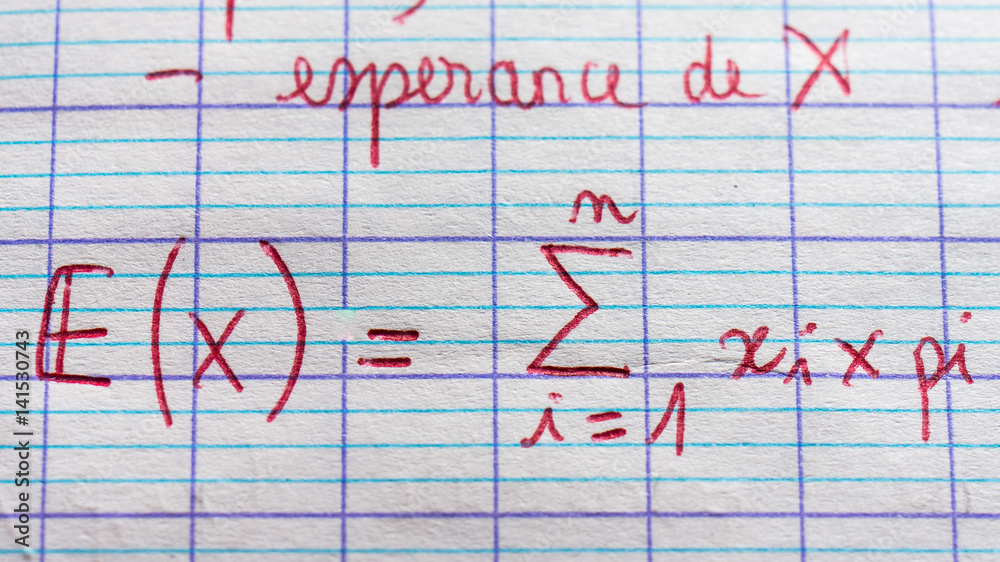 - esperance de X
n
E(x) = Σ xi x pi
i = 1
Adobe Stock | #141530743